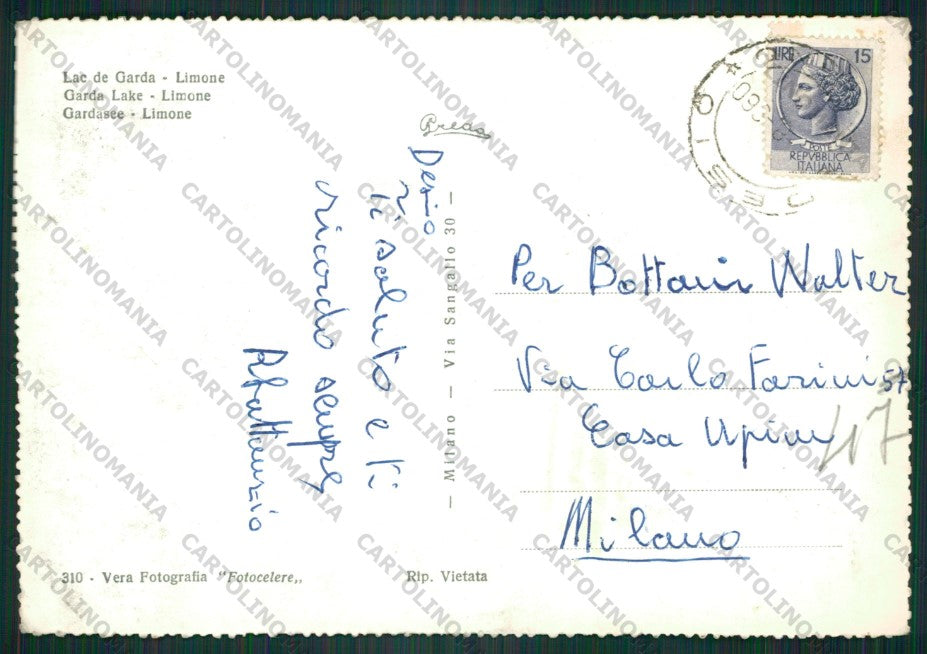 Lac de Garda - Limone
Garda Lake - Limone
Gardasee - Limone
Breda
Desio
ti saluto e ti
ricordo sempre
— Milano — Via Sangallo 30 —
310 - Vera Fotografia "Fotocelere„
Rip. Vietata
DESIO
LIRE 15
POSTE
REPVBBLICA
ITALIANA
Per Bottani Walter
Via Carlo Farini 57
Casa Upim
Milano
CARTOLINOMANIA